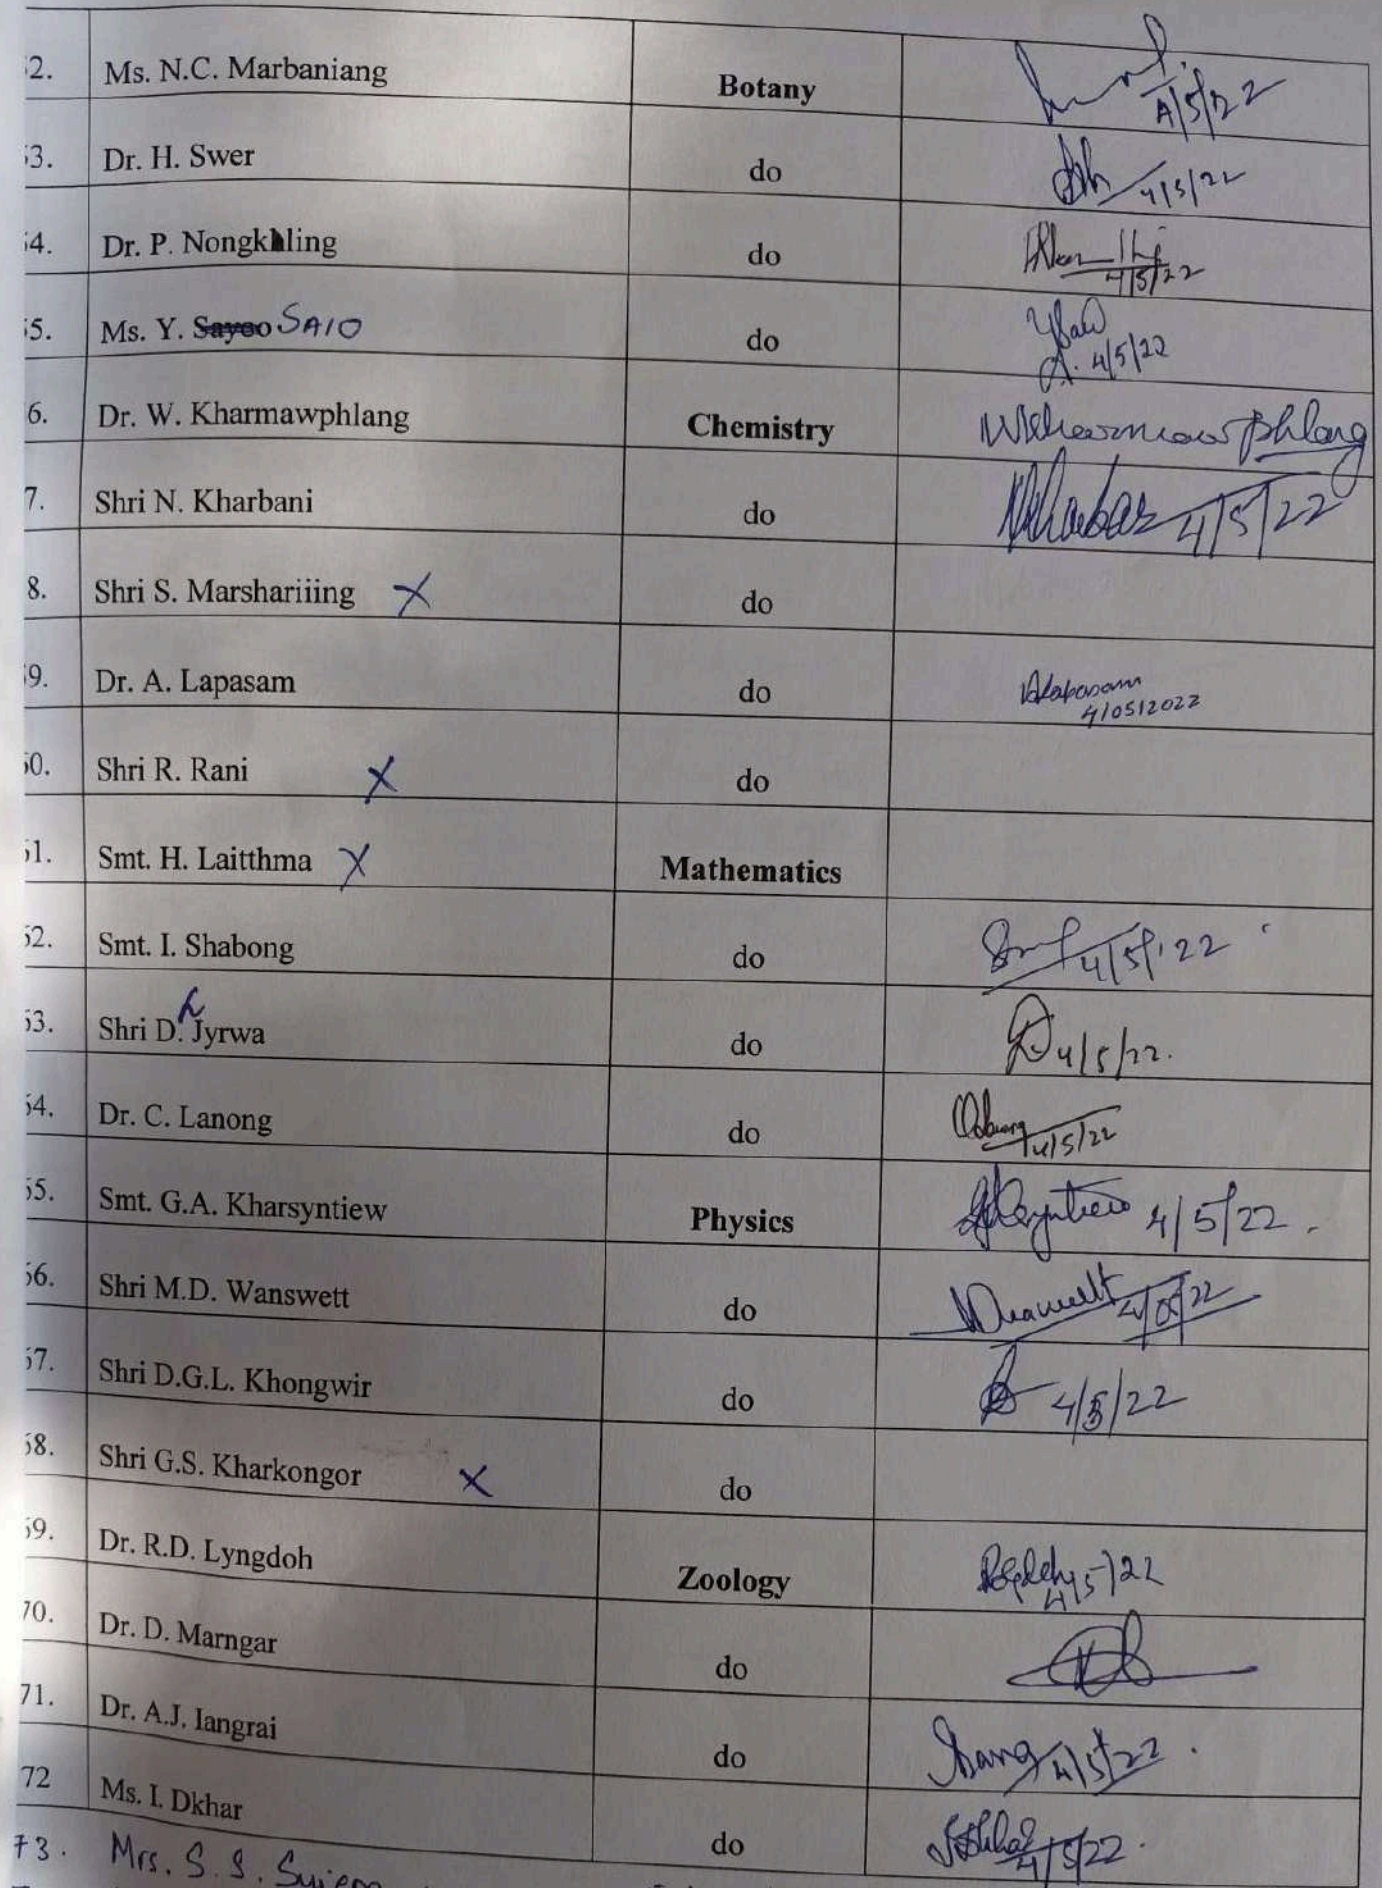 2. Ms. N.C. Marbaniang Botany 4/5/22
3. Dr. H. Swer do 4/5/22
4. Dr. P. Nongkhling do 4/5/22
5. Ms. Y. Sayoo SAIO do YSaio 4/5/22
6. Dr. W. Kharmawphlang Chemistry WKharmawphlang
7. Shri N. Kharbani do 4/5/22
8. Shri S. Marshariiing X do
9. Dr. A. Lapasam do ALapasam
4/05/2022
0. Shri R. Rani X do
1. Smt. H. Laitthma X Mathematics
62. Smt. I. Shabong do 4/5/'22
63. Shri D. Jyrwa do 4/5/22.
64. Dr. C. Lanong do 4/5/22
65. Smt. G.A. Kharsyntiew Physics 4/5/22.
66. Shri M.D. Wanswett do 4/05/22
67. Shri D.G.L. Khongwir do 4/5/22
68. Shri G.S. Kharkongor X do
69. Dr. R.D. Lyngdoh Zoology 4/5/22
70. Dr. D. Marngar do
71. Dr. A.J. Iangrai do 4/5/22.
72 Ms. I. Dkhar do IDkhar 4/5/22.
73. Mrs. S. S.